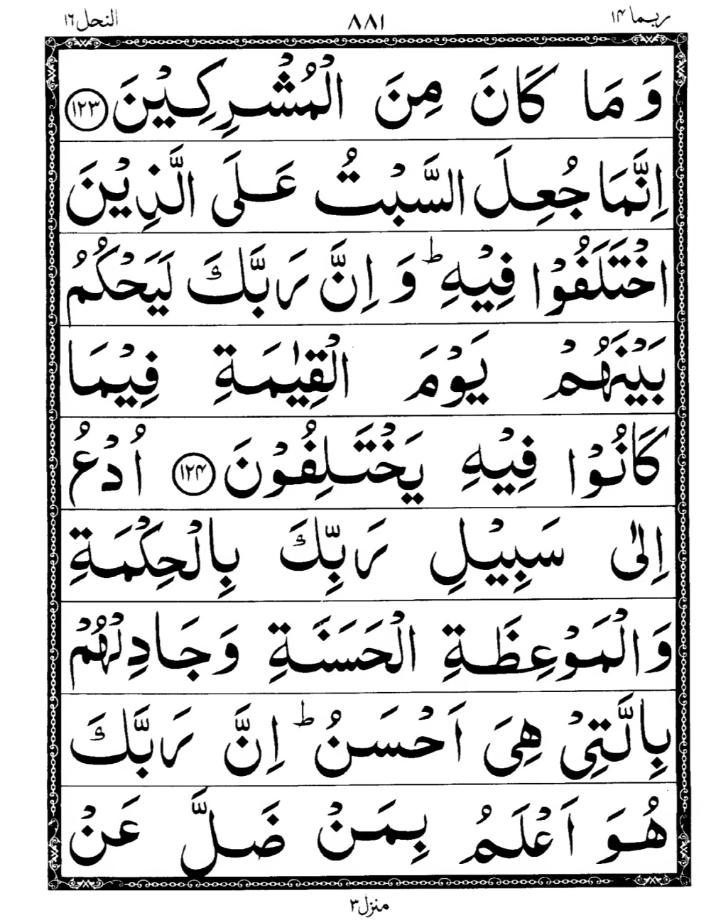 ربما ۱۴ ۸۸۱ النحل ۱۶
وَمَا كَانَ مِنَ الْمُشْرِكِيْنَ ﴿۱۲۳﴾
اِنَّمَا جُعِلَ السَّبْتُ عَلَى الَّذِيْنَ
اخْتَلَفُوْا فِيْهِ ؕ وَ اِنَّ رَبَّكَ لَيَحْكُمُ
بَيْنَهُمْ يَوْمَ الْقِيٰمَةِ فِيْمَا
كَانُوْا فِيْهِ يَخْتَلِفُوْنَ ﴿۱۲۴﴾ اُدْعُ
اِلٰى سَبِيْلِ رَبِّكَ بِالْحِكْمَةِ
وَالْمَوْعِظَةِ الْحَسَنَةِ وَجَادِلْهُمْ
بِالَّتِيْ هِيَ اَحْسَنُ ؕ اِنَّ رَبَّكَ
هُوَ اَعْلَمُ بِمَنْ ضَلَّ عَنْ
منزل ۳